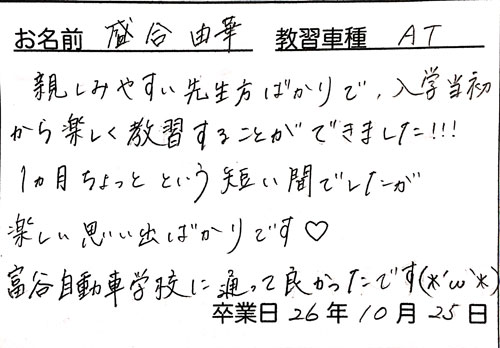 お名前 盛合 由華 教習車種 AT
親しみやすい先生方ばかりで、入学当初
から楽しく教習することができました!!!
1ヵ月ちょっとという短い間でしたが
楽しい思い出ばかりです♡
富谷自動車学校に通って良かったです(*´ω`*)
卒業日 26年 10月 25日